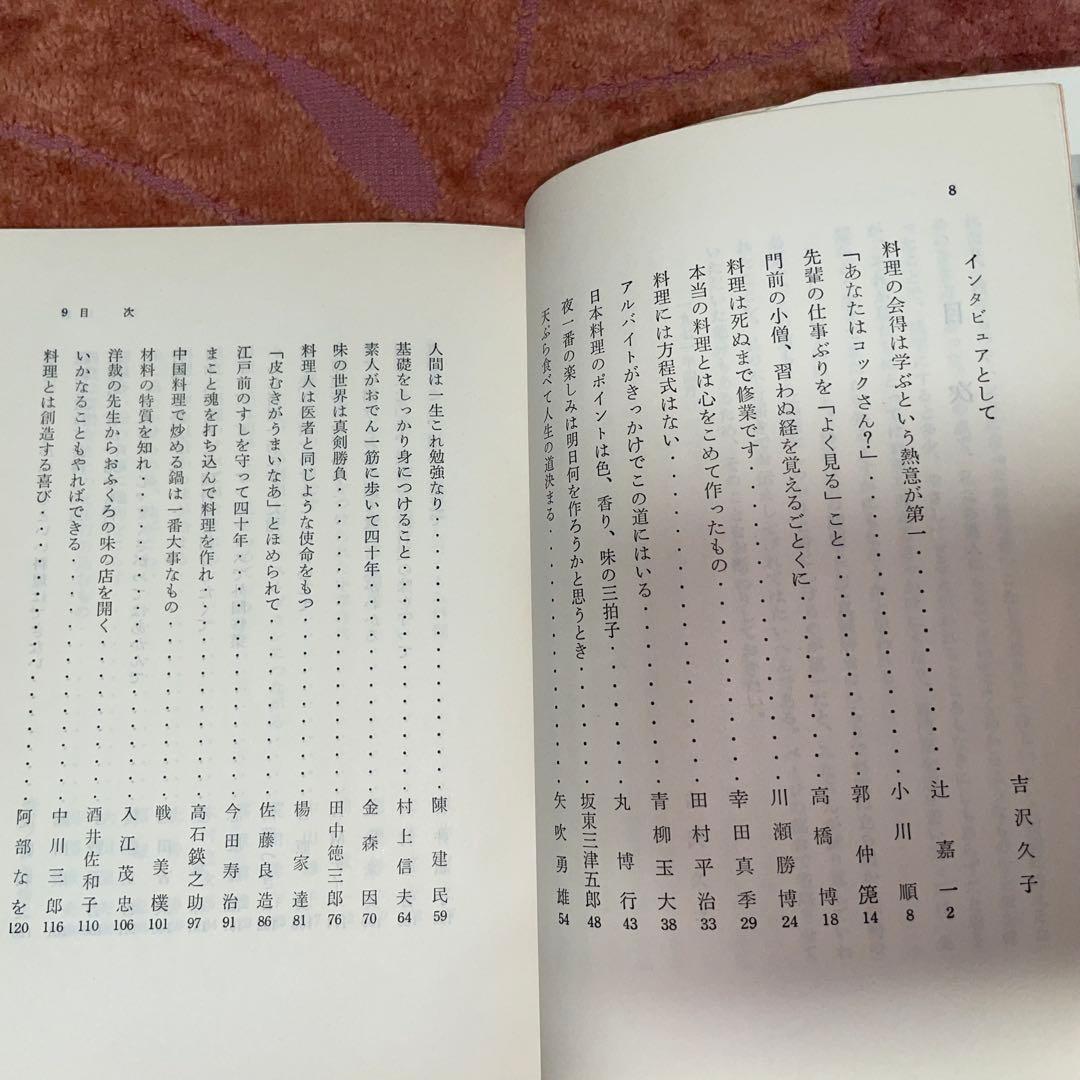 8
インタビュアとして 吉沢久子
料理の会得は学ぶという熱意が第一・・・・・・・・辻 嘉一 2
「あなたはコックさん？」・・・・・・・・・・小川 順 8
先輩の仕事ぶりを「よく見る」こと・・・・・・・・郭 仲 14
門前の小僧、習わぬ経を覚えるごとくに・・・・・・・高橋 博 18
料理は死ぬまで修業です・・・・・・・・・・川瀬勝博 24
本当の料理とは心をこめて作ったもの・・・・・・・幸田真季 29
料理には方程式はない・・・・・・・・・・田村平治 33
アルバイトがきっかけでこの道にはいる・・・・・・・青柳玉大 38
日本料理のポイントは色、香り、味の三拍子・・・・・・丸 博行 43
夜一番の楽しみは明日何を作ろうかと思うとき・・・・・坂東三津五郎 48
天ぷら食べて人生の道決まる・・・・・・・・・・矢吹勇雄 54
9 目 次
人間は一生これ勉強なり・・・・・・・・・・陳 建民 59
基礎をしっかり身につけること・・・・・・・・・村上信夫 64
素人がおでん一筋に歩いて四十年・・・・・・・・金森 因 70
味の世界は真剣勝負・・・・・・・・・・・田中徳三郎 76
料理人は医者と同じような使命をもつ・・・・・・・楊 家達 81
「皮むきがうまいなあ」とほめられて・・・・・・・佐藤良造 86
江戸前のすしを守って四十年・・・・・・・・・今田寿治 91
まこと魂を打ち込んで料理を作れ・・・・・・・・高石鍈之助 97
中国料理で炒める鍋は一番大事なもの・・・・・・・戦 美樸 101
材料の特質を知れ・・・・・・・・・・・・入江茂忠 106
洋裁の先生からおふくろの味の店を開く・・・・・・・酒井佐和子 110
いかなることもやればできる・・・・・・・・・中川三郎 116
料理とは創造する喜び・・・・・・・・・・・阿部なを 120